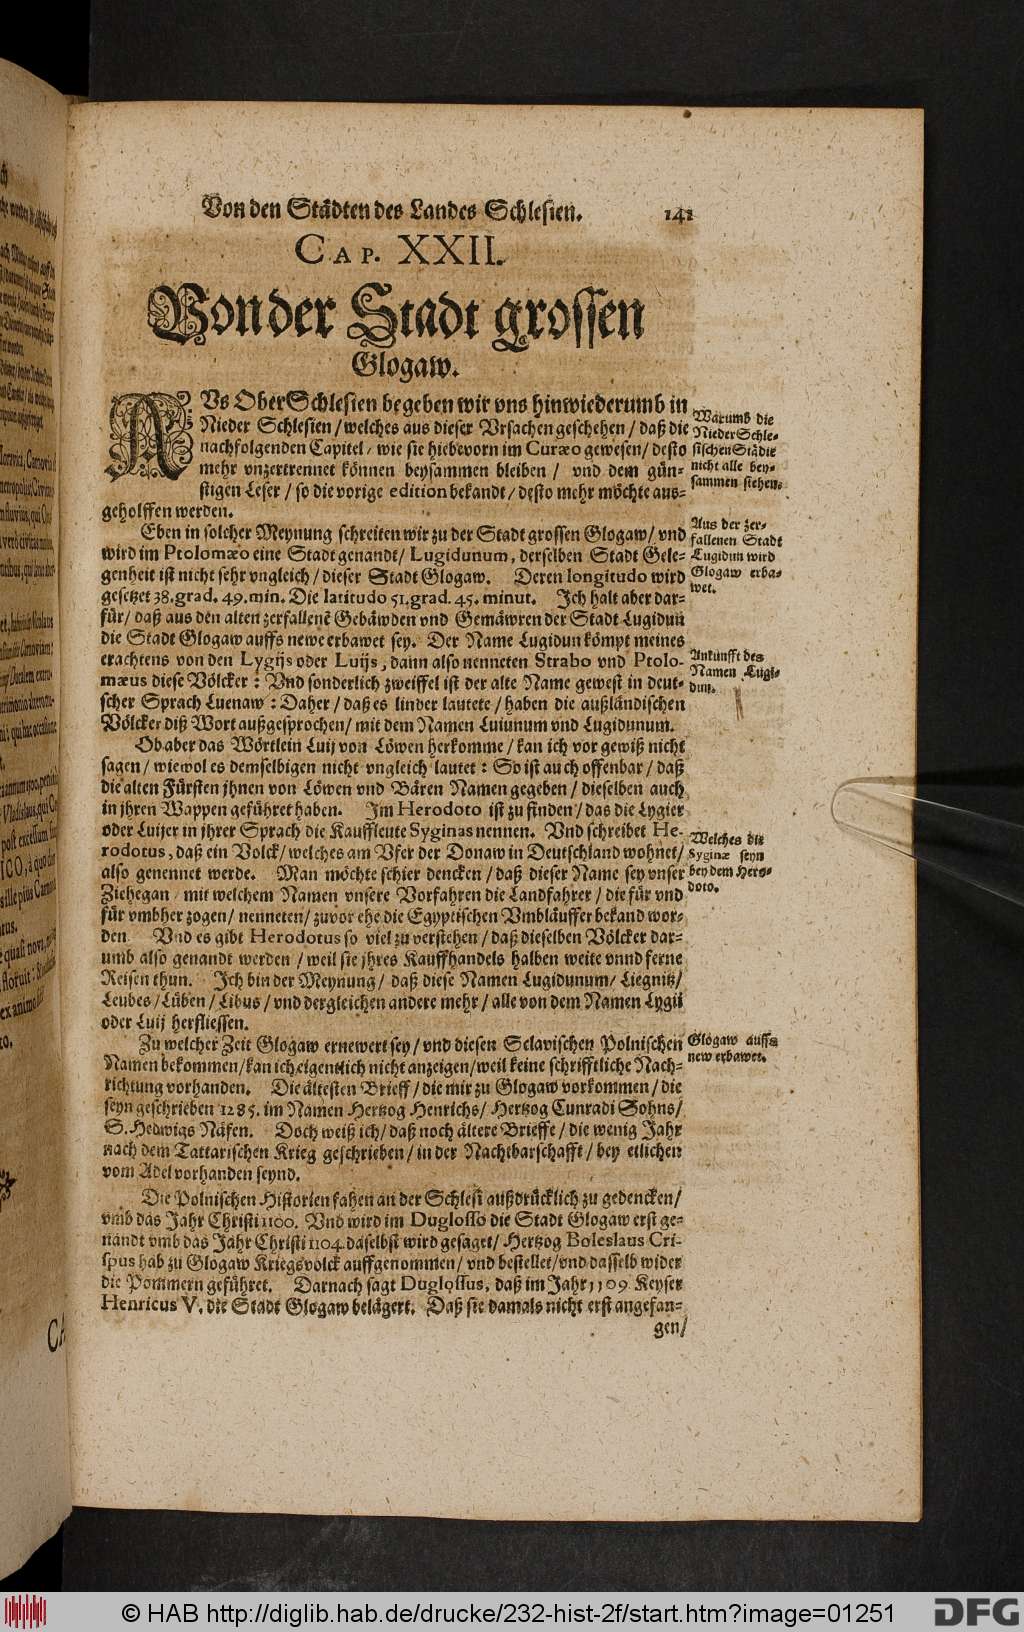 Von den Städten des Landes Schlesien. 141
CAP. XXII.
Von der Stadt grossen
Glogaw.
AUs OberSchlesien begeben wir vns hinwiederumb in
Nieder Schlesien / welches aus dieser Vrsachen geschehen / daß die
nachfolgenden Capitel / wie sie hiebevorn im Curæo gewesen / desto
mehr vnzertrennet können beysammen bleiben / vnd dem gün-
stigen Leser / so die vorige edition bekandt / desto mehr möchte aus-
geholffen werden.
Warumb die
NiederSchle-
sischen Städte
nicht alle bey-
sammen stehen.
Eben in solcher Meynung schreiten wir zu der Stadt grossen Glogaw / vnd
wird im Ptolomæo eine Stadt genandt / Lugidunum, derselben Stadt Gele-
genheit ist nicht sehr vngleich / dieser Stadt Glogaw. Deren longitudo wird
gesetzet 38. grad. 49. min. Die latitudo 51. grad. 45. minut. Ich halt aber dar-
für / daß aus den alten zerfallenē Gebäwden vnd Gemäwren der Stadt Lugidun
die Stadt Glogaw auffs newe erbawet sey. Der Name Lugidun kömpt meines
erachtens von den Lygijs oder Luijs, dann also nenneten Strabo vnd Ptolo-
mæus diese Völcker: Vnd sonderlich zweiffel ist der alte Name gewest in deut-
scher Sprach Luenaw: Daher / daß es linder lautete / haben die außländischen
Völcker diß Wort außgesprochen / mit dem Namen Luiunum vnd Lugidunum.
Aus der zer-
fallenen Stadt
Lugidun wird
Glogaw erba-
wet.
Ankunfft des
Namen Lugi-
dun.
Ob aber das Wörtlein Luij von Löwen herkomme / kan ich vor gewiß nicht
sagen / wiewol es demselbigen nicht vngleich lautet: So ist auch offenbar / daß
die alten Fürsten jhnen von Löwen vnd Bären Namen gegeben / dieselben auch
in jhren Wappen geführet haben. Im Herodoto ist zu finden / das die Lygier
oder Luijer in jhrer Sprach die Kauffleute Syginas nennen. Vnd schreibet He-
rodotus, daß ein Volck / welches am Vfer der Donaw in Deutschland wohnet /
also genennet werde. Man möchte schier dencken / daß dieser Name sey vnser
Ziehegan / mit welchem Namen vnsere Vorfahren die Landfahrer / die für vnd
für vmbher zogen / nenneten / zuvor ehe die Egyptischen Vmbläuffer bekand wor-
den. Vnd es gibt Herodotus so viel zu verstehen / daß dieselben Völcker dar-
umb also genandt werden / weil sie jhres Kauffhandels halben weite vnnd ferne
Reisen thun. Ich bin der Meynung / daß diese Namen Lugidunum / Liegnitz /
Leubes / Lüben / Libus / vnd dergleichen andere mehr / alle von dem Namen Lygii
oder Luij herfliessen.
Welches die
Syginæ seyn
bey dem Hero-
doto.
Zu welcher Zeit Glogaw ernewert sey / vnd diesen Sclavischen Polnischen
Namen bekommen / kan ich eigentlich nicht anzeigen / weil keine schrifftliche Nach-
richtung vorhanden. Die ältesten Brieff / die mir zu Glogaw vorkommen / die
seyn geschrieben 1285. im Namen Hertzog Henrichs / Hertzog Cunradi Sohns /
S. Hedwigs Näfen. Doch weiß ich / daß noch ältere Brieffe / die wenig Jahr
nach dem Tattarischen Krieg geschrieben / in der Nachtbarschafft / bey etlichen
vom Adel vorhanden seynd.
Glogaw auffs
new erbawet.
Die Polnischen Historien fahen an der Schlesi außdrücklich zu gedencken /
vmb das Jahr Christi 1100. Vnd wird im Duglosso die Stadt Glogaw erst ge-
nandt vmb das Jahr Christi 1104. daselbst wird gesaget / Hertzog Boleslaus Cri-
spus hab zu Glogaw Kriegsvolck auffgenommen / vnd bestellet / vnd dasselb wider
die Pommern geführet. Darnach sagt Duglossus, daß im Jahr 1109 Keyser
Henricus V. die Stadt Glogaw belägert. Daß sie damals nicht erst angefan-
gen /
© HAB http://diglib.hab.de/drucke/232-hist-2f/start.htm?image=01251
DFG